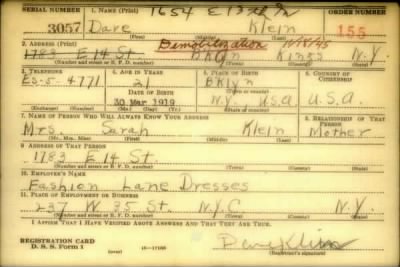 SERIAL NUMBER 1. NAME (Print) 1654 E 13th ORDER NUMBER
3057 Dave Klein 155
(First) (Middle) (Last)
2. ADDRESS (Print) Demobilization 11/8/45
1783 E 14 St. Bklyn Kings N.Y.
(Number and street or R. F. D. number) (Town) (County) (State)
3. TELEPHONE 4. AGE IN YEARS 5. PLACE OF BIRTH 6. COUNTRY OF CITIZENSHIP
Es-5-4771 21 Bklyn
DATE OF BIRTH (Town or county)
30 Mar 1919 N.Y. U.S.A U.S.A.
(Exchange) (Number) (Mo.) (Day) (Yr.) (State or country)
7. NAME OF PERSON WHO WILL ALWAYS KNOW YOUR ADDRESS 8. RELATIONSHIP OF THAT PERSON
Mrs. Sarah Klein Mother
(Mr., Mrs., Miss) (First) (Middle) (Last)
9. ADDRESS OF THAT PERSON
1783 E 14 St.
(Number and street or R. F. D. number) (Town) (County) (State)
10. EMPLOYER'S NAME
Fashion Lane Dresses
11. PLACE OF EMPLOYMENT OR BUSINESS
237 W 35 St. N.Y.C N.Y.
(Number and street or R. F. D. number) (Town) (County) (State)
I AFFIRM THAT I HAVE VERIFIED ABOVE ANSWERS AND THAT THEY ARE TRUE.
REGISTRATION CARD Dave Klein
D. S. S. Form 1 (over) 16—17105 (Registrant's signature)